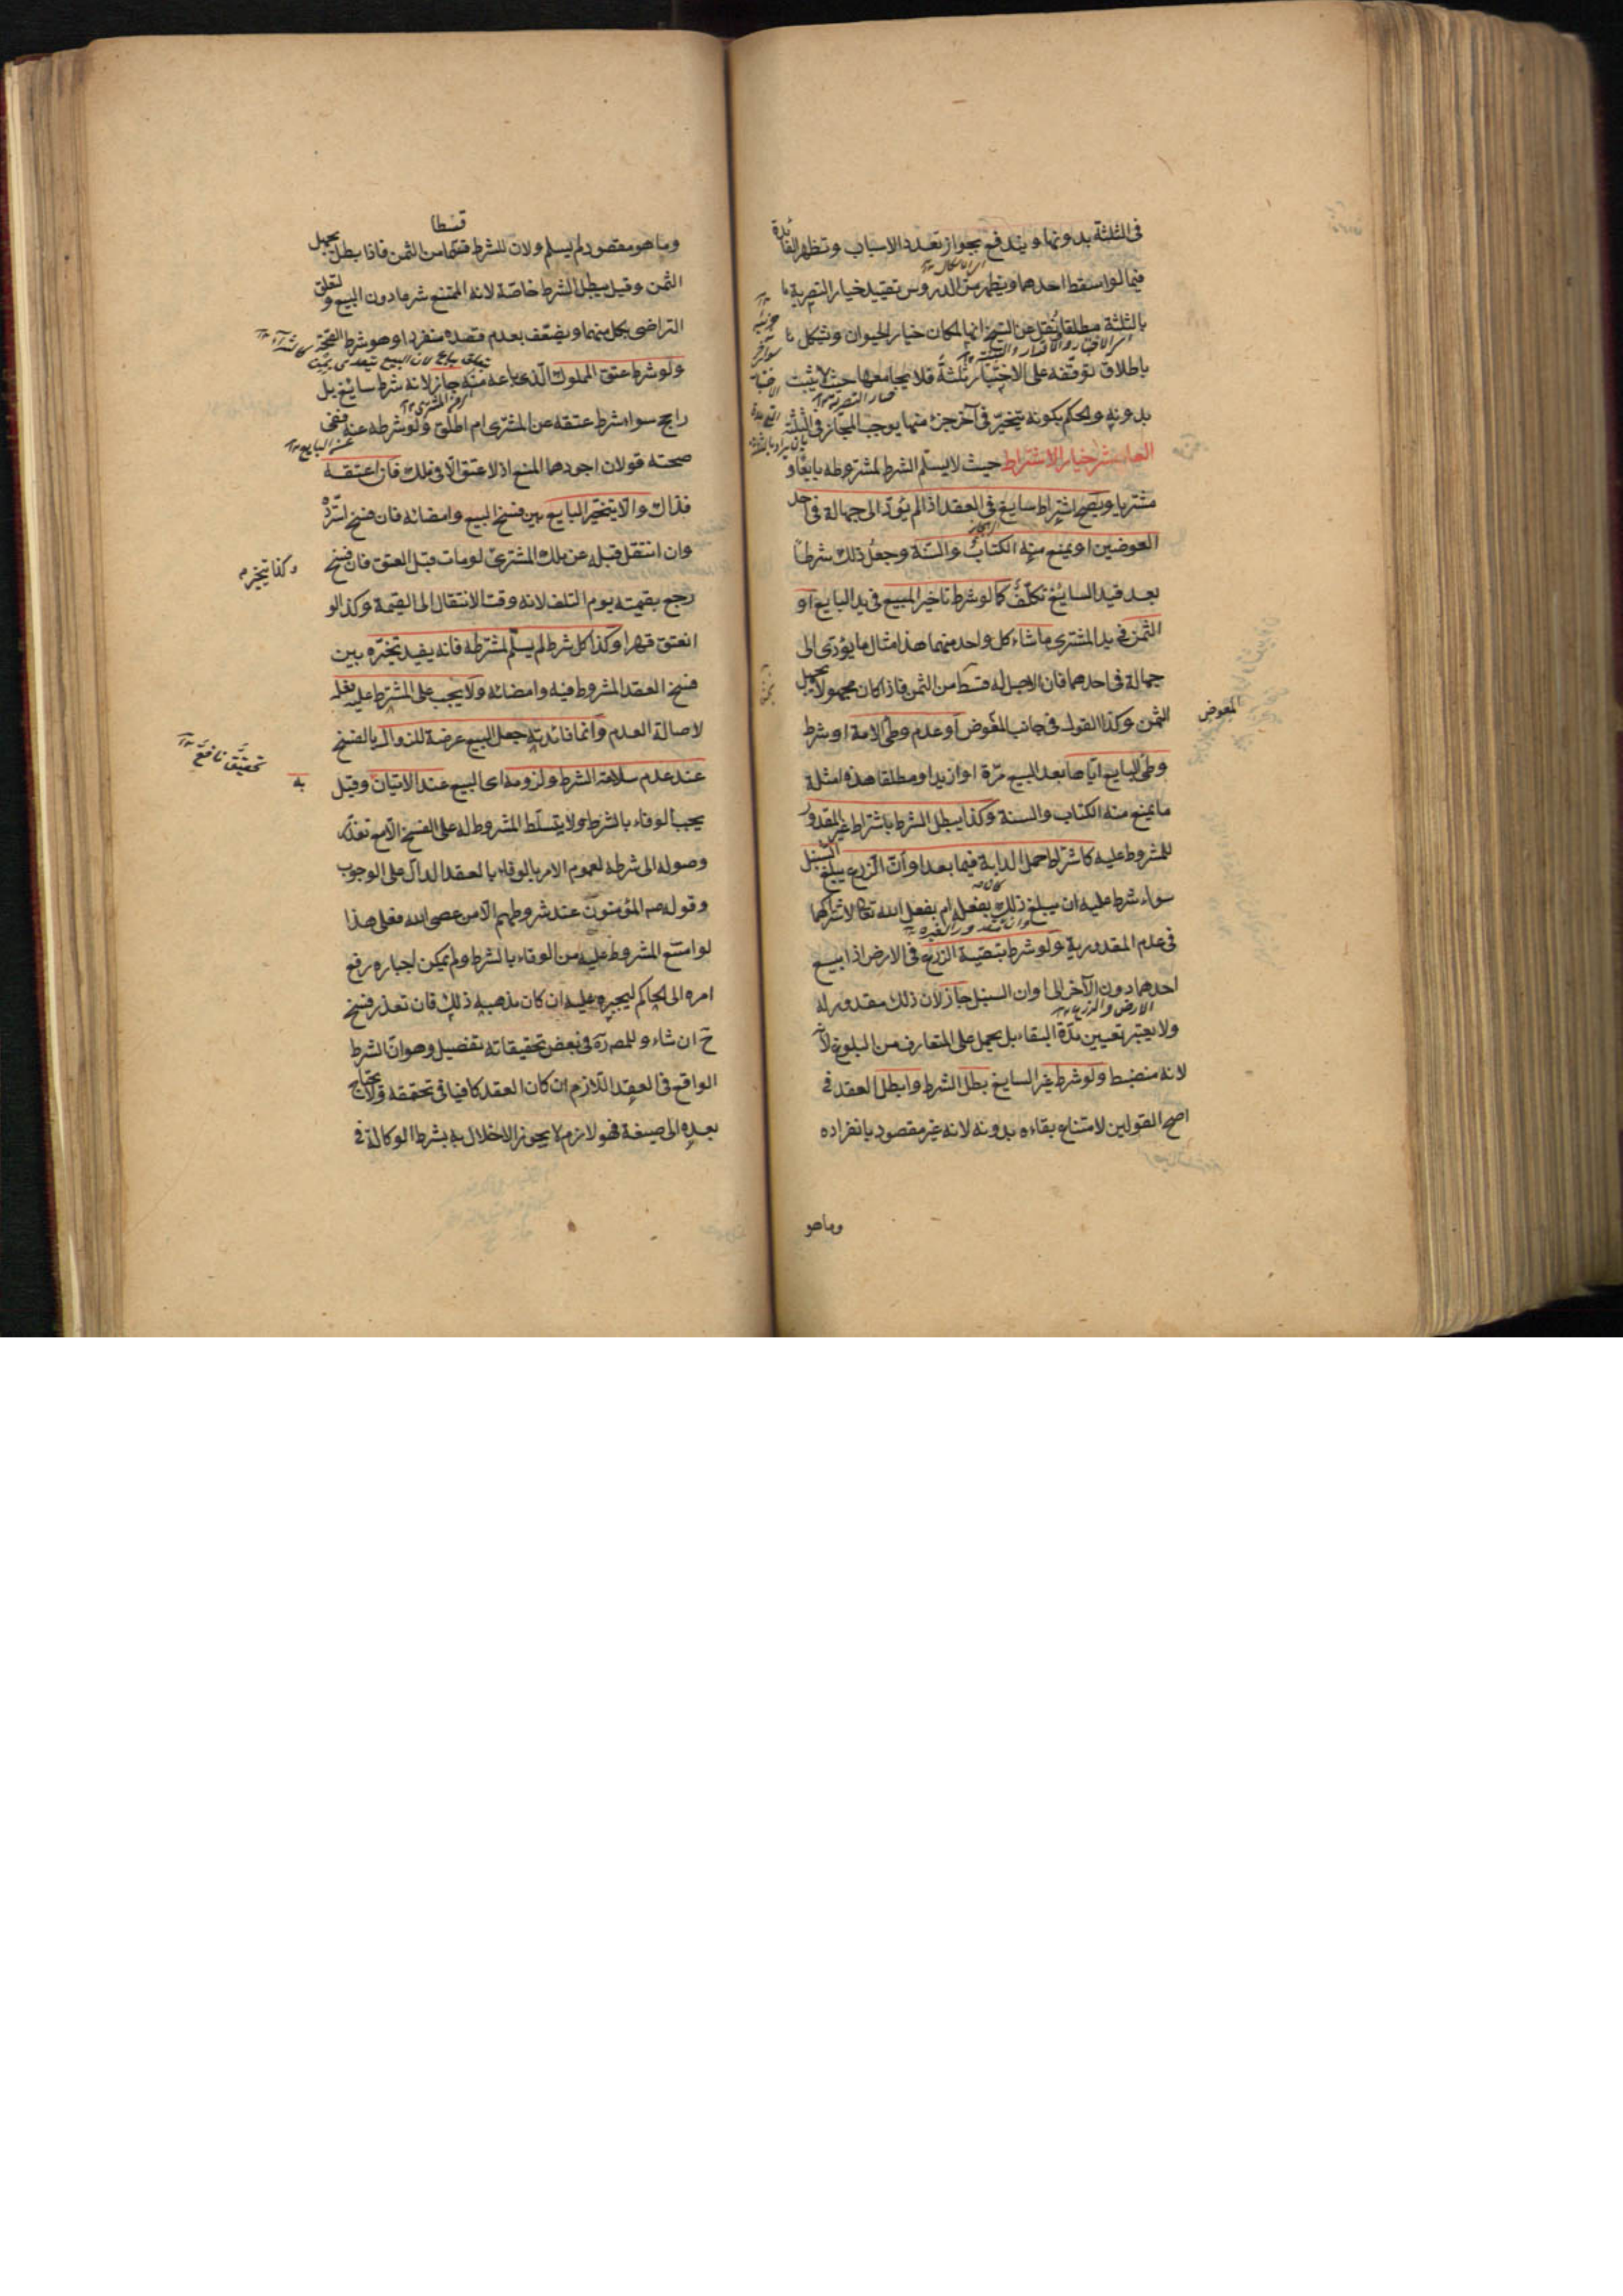 في الثلثة بدونها ويندفع بجواز تعدد الاسباب وتظهر الفائدة
فيما لو اسقط احدهما ويظهر من الدروس تقييد خيار التصرية
بالثلثة مطلقا ونقل عن الشيخ انها لمكان خيار الحيوان ويشكل
باطلاق توقفه على الاختبار ثلثة فلا يجامعها حيث لا يثبت
بدونه والحكم بكونه يتخير في آخر جزء منها يوجب المجاز في الثلثة
العاشر خيار الاشتراط حيث لا يسلم الشرط لمشترطه بايعا او
مشتريا ويصح اشتراط سايغ في العقد اذا لم يؤد الى جهالة في احد
العوضين او يمنع منه الكتاب والسنة وجعل ذلك شرطا
بعد قيد السايغ تكلف كما لو شرط تاخير المبيع في يد البايع او
الثمن في يد المشتري ما شاء كل واحد منهما هذا مثال ما يؤدي الى
جهالة في احدهما فان الاجل له قسط من الثمن فاذا كان مجهولا يجهل
الثمن وكذا القول في جانب المعوض او عدم وطئ الامة او شرط
المعوض
وطئ البايع اياها بعد البيع مرة او ازيد او مطلقا هذه امثلة
ما يمنع منه الكتاب والسنة وكذا يبطل الشرط باشتراط غير المقدور
للمشروط عليه كاشتراط حمل الدابة فيما بعد او ان الزرع يبلغ السنبل
سواء شرط عليه ان يبلغ ذلك بفعله ام بفعل الله تعالى لاشتراكهما
في عدم المقدورية ولو شرط تبقية الزرع في الارض اذا بيع
احدهما دون الآخر الى اوان السنبل جاز لان ذلك مقدور له
الارض والزرع
ولا يعتبر تعيين مدة البقاء بل يحمل على المتعارف من البلوغ
لانه منضبط ولو شرط غير السايغ بطل الشرط وابطل العقد في
اصح القولين لامتناع بقاءه بدونه لانه غير مقصود بانفراده
وما هو
قسطا
وما هو مقصود لم يسلم ولان للشرط قسطا من الثمن فاذا بطل يجهل
الثمن وقيل يبطل الشرط خاصة لانه الممتنع شرعا دون البيع ولتعلق
التراضي بكل منهما ويضعف بعدم قصده منفردا وهو شرط الصحة
ولو شرط عتق المملوك الذي باعه منه جاز لانه شرط سايغ بل
راجح سواء شرط عتقه عن المشتري ام اطلق ولو شرطه عنه ففي
عن البايع
صحته قولان اجودهما المنع اذ لا عتق الا في ملك فان اعتقه
فذاك والا يتخير البايع بين فسخ البيع وامضائه فان فسخ استرده
وان انتقل قبله عن ملك المشتري لو مات قبل العتق فان فسخ
وكذا يتخير
رجع بقيمته يوم التلف لانه وقت الانتقال الى القيمة وكذا لو
انعتق قهرا وكذا كل شرط لم يسلم لمشترطه فانه يفيد تخيره بين
فسخ العقد المشروط فيه وامضائه ولا يجب على المشترط عليه فعله
لاصالة العدم وانما فائدته جعل البيع عرضة للزوال بالفسخ
عند عدم سلامة الشرط ولزومه اي البيع عند الاتيان وقيل
به
تحقيق نافع
يجب الوفاء بالشرط ولا يتسلط المشروط له على الفسخ الا مع تعذر
وصوله الى شرطه لعموم الامر بالوفاء بالعقد الدال على الوجوب
وقوله ص المؤمنون عند شروطهم الا من عصى الله فعلى هذا
لو امتنع المشروط عليه من الوفاء بالشرط ولم يمكن اجباره رفع
امره الى الحاكم ليجبره عليه ان كان مذهبه ذلك فان تعذر فسخ
ح ان شاء وللمص ره في بعض تحقيقاته تفصيل وهو ان الشرط
الواقع في العقد اللازم ان كان العقد كافيا في تحققه ولا يحتاج
بعده الى صيغة فهو لازم لا يجوز الاخلال به بشرط الوكالة في